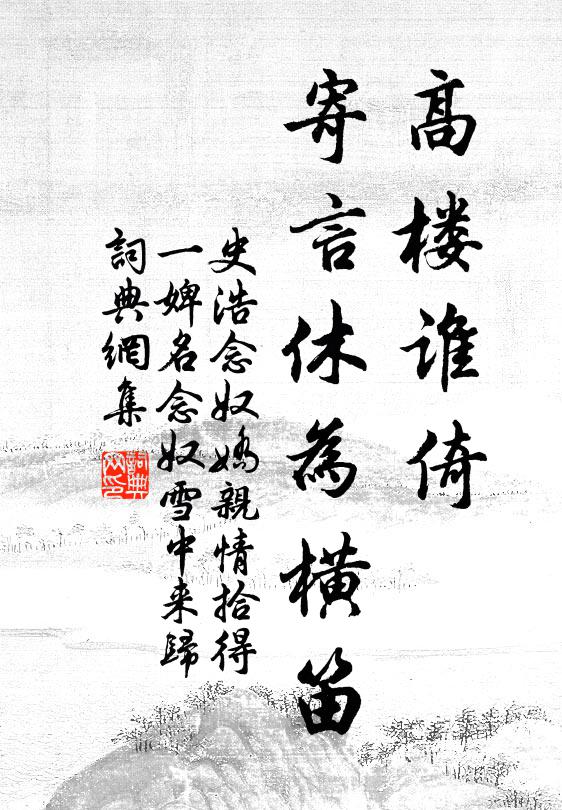 高楼谁倚
寄言休為横笛
史浩念奴嬌親情拾得
一婢名念奴雪中来歸
詞典網集
詞典
网印